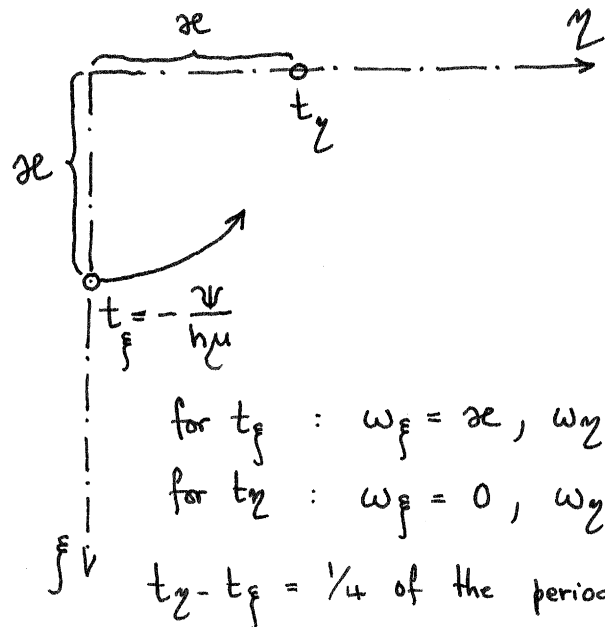 ϰ
η
t_η
ϰ
t_ξ = - ψ/hμ
for t_ξ : ω_ξ = ϰ , ω_η
for t_η : ω_ξ = 0 , ω_η
ξ
t_η - t_ξ = 1/4 of the period